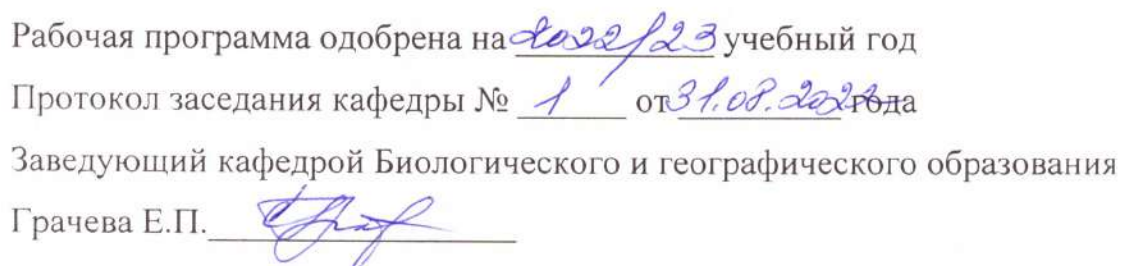 Рабочая программа одобрена на 2022/23 учебный год
Протокол заседания кафедры № 1 от 31.08.2022 года
Заведующий кафедрой Биологического и географического образования
Грачева Е.П.